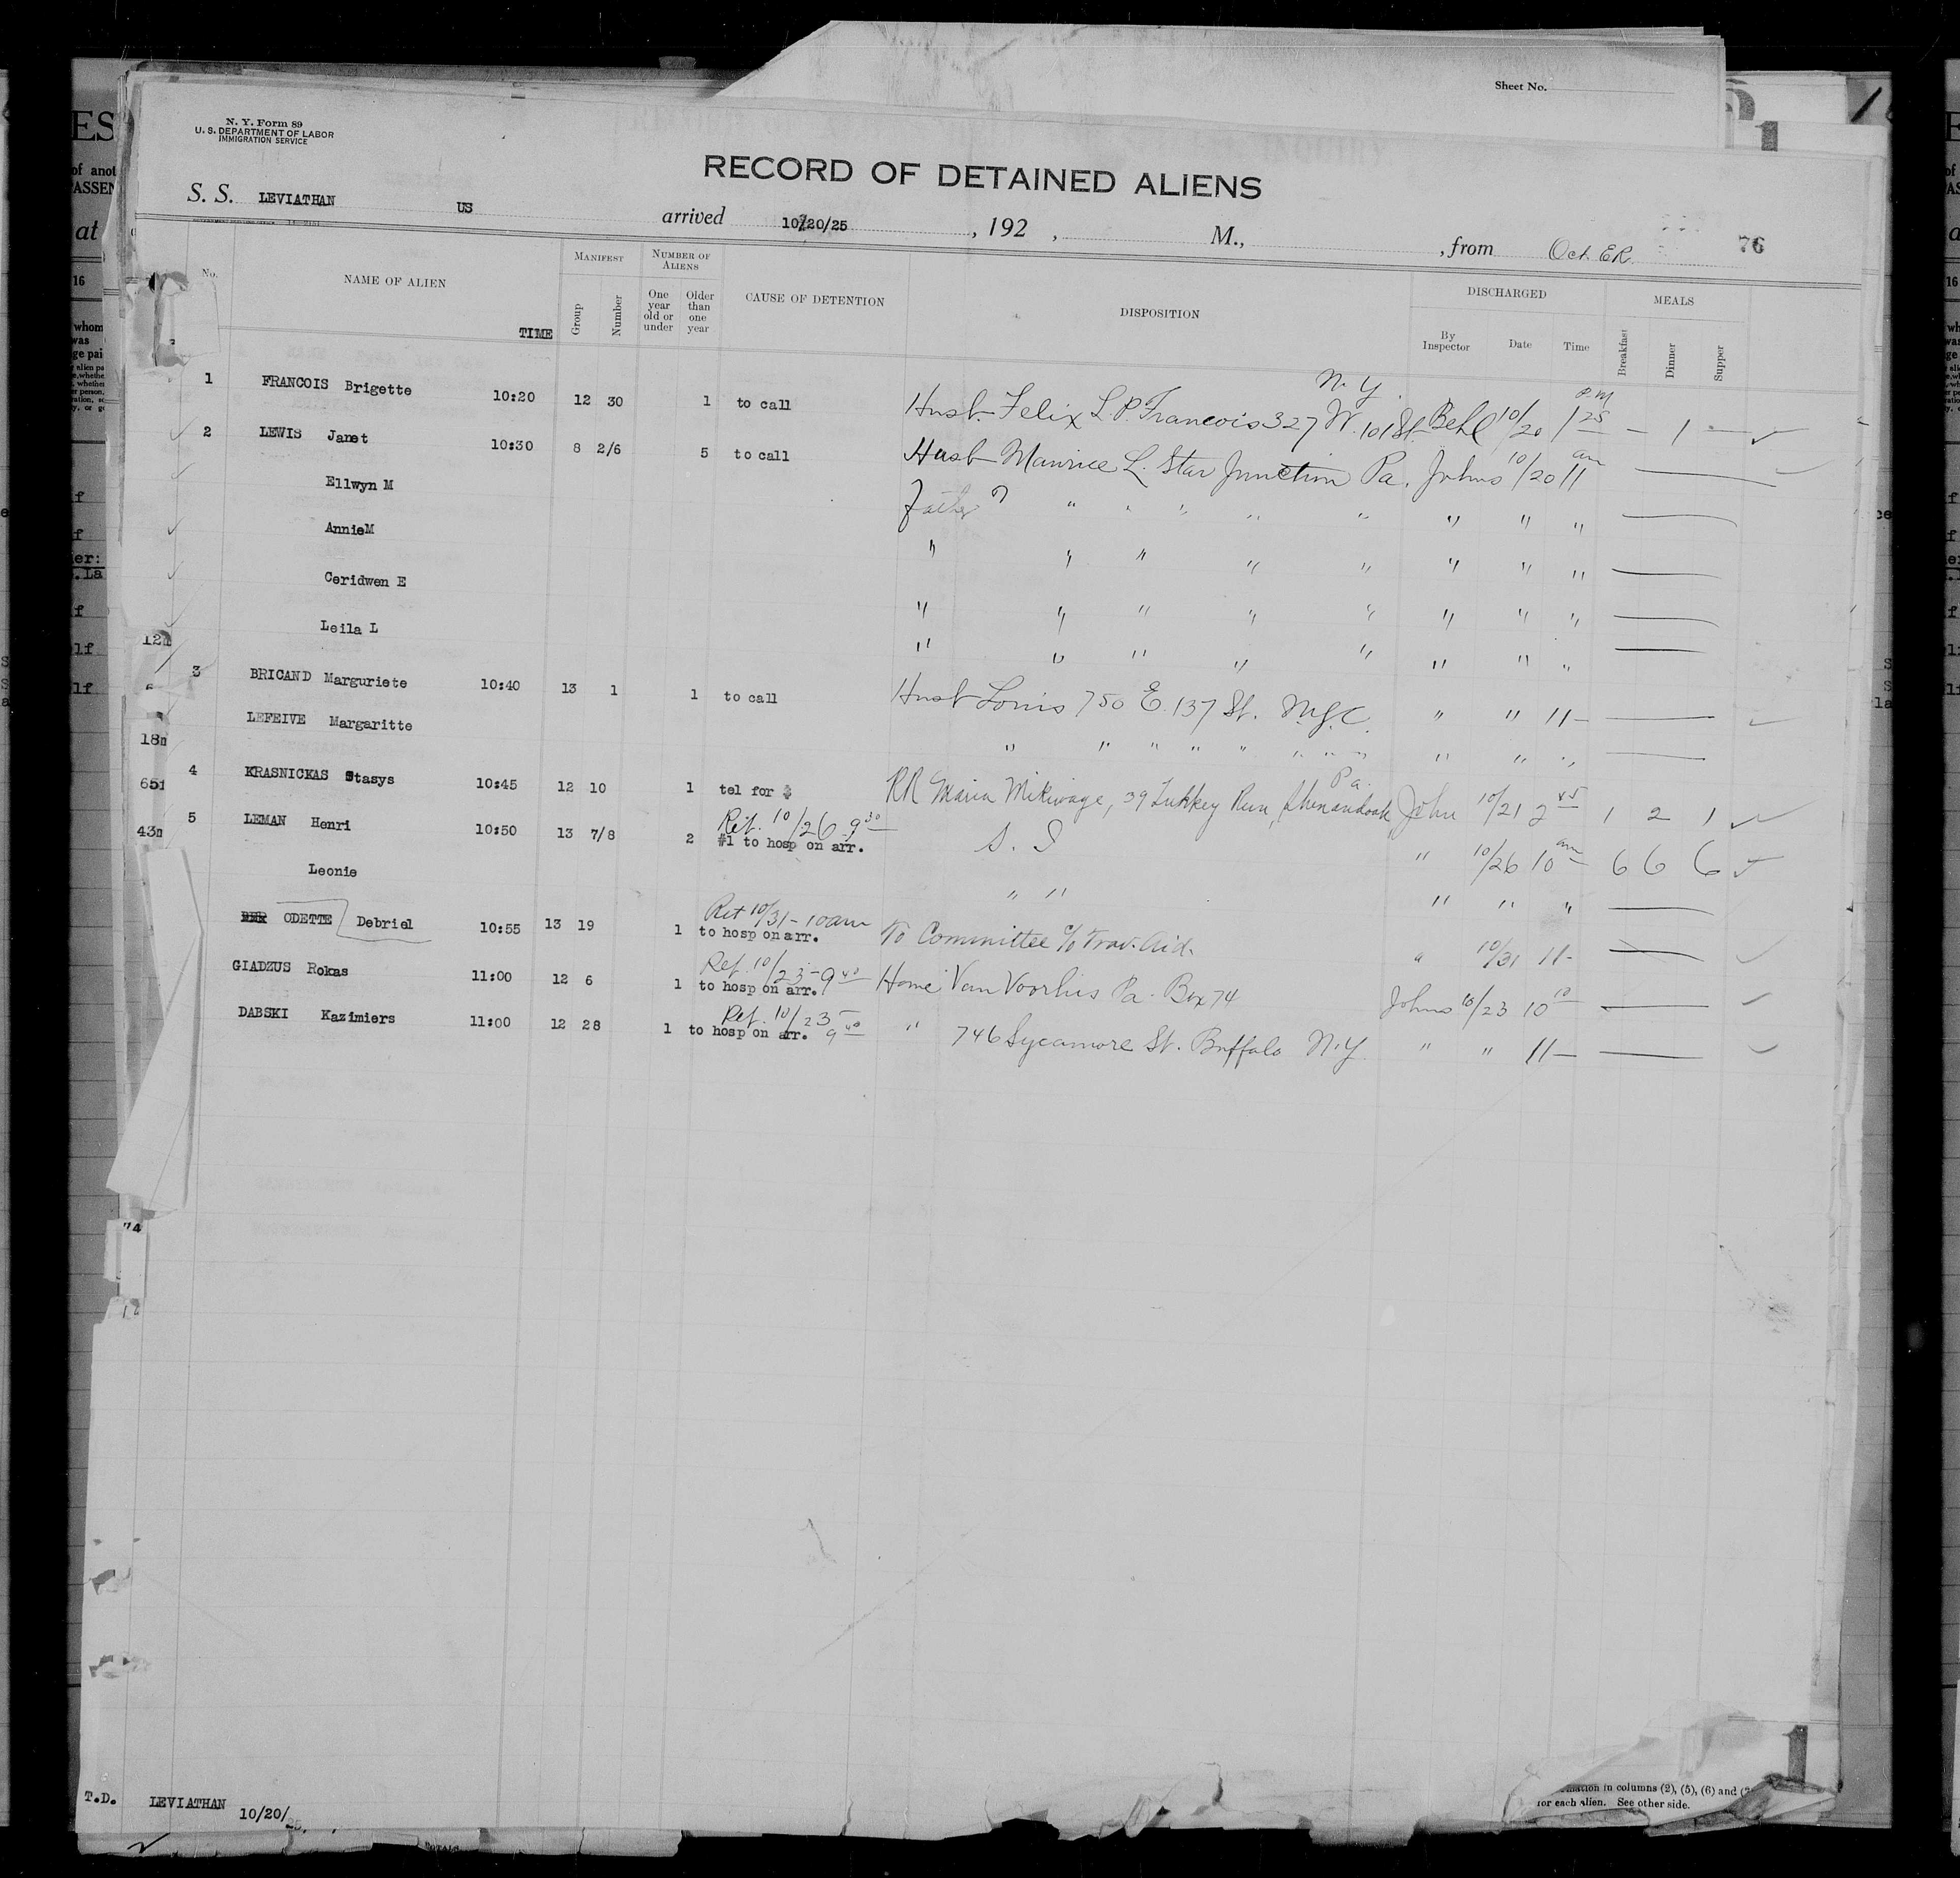 Sheet No.
N. Y. Form 89
U. S. DEPARTMENT OF LABOR
IMMIGRATION SERVICE
RECORD OF DETAINED ALIENS
S. S. LEVIATHAN US arrived 10/20/25, 192 , M., , from Oct. ER. 76
No. NAME OF ALIEN TIME MANIFEST Group Number NUMBER OF ALIENS One year old or under Older than one year CAUSE OF DETENTION DISPOSITION DISCHARGED By Inspector Date Time MEALS Breakfast Dinner Supper
N.Y. P.M
1 FRANCOIS Brigette 10:20 12 30 1 to call Husb Felix L. P. Francois 327 W. 101 St Behl 10/20 1 25 — 1 —
2 LEWIS Janet 10:30 8 2/6 5 to call Husb Maurice L. Star Junction Pa. Johns 10/20 11 am
Ellwyn M Father " " " " " " " "
AnnieM " " " " " " " "
Ceridwen E " " " " " " " "
Leila L " " " " " " " "
3 BRICAND Marguriete 10:40 13 1 1 to call Husb Louis 750 E. 137 St. N.Y.C. " " 11—
LEFEIVE Margaritte " " " " " " " " " " "
Pa.
4 KRASNICKAS Stasys 10:45 12 10 1 tel for $ RR Maria 39 Run, Shenandoah John 10/21 2 45 1 2 1
Ret. 10/26 - 9 30
5 LEMAN Henri 10:50 13 7/8 2 #1 to hosp on arr. S. I " 10/26 10 am 6 6 6
Leonie " " " " "
Ret 10/31 - 10am
ODETTE Debriel 10:55 13 19 1 to hosp on arr. To Committee c/o Trav. Aid. " 10/31 11-
Ret. 10/23 - 9 40
GIADZUS Rokas 11:00 12 6 1 to hosp on arr. Home Van Voorhis Pa. Box 74 Johns 10/23 10 10
Ret. 10/23 - 9 40
DABSKI Kazimiers 11:00 12 28 1 to hosp on arr. " 746 Sycamore St. Buffalo N.Y. " " 11—
T.D. LEVIATHAN 10/20/25.
in columns (2), (5), (6) and
for each alien. See other side.